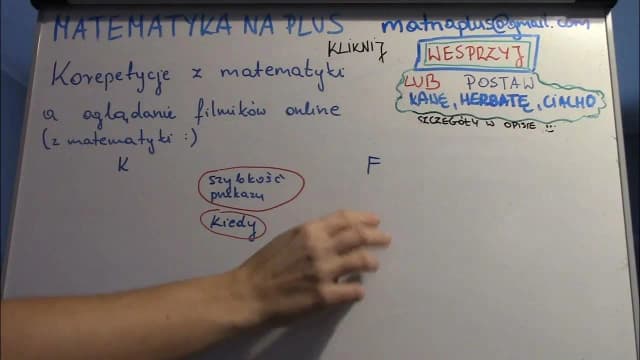 MATEMATYKA NA PLUS
matnaplus@gmail.com
KLIKNIJ
WESPRZYJ
LUB POSTAW
KAWĘ, HERBATĘ, CIACHO
SZCZEGÓŁY W OPISIE :)
Korepetycje z matematyki
a oglądanie filmików online
(z matematyki :)
K
F
szybkość
przekazu
kiedy